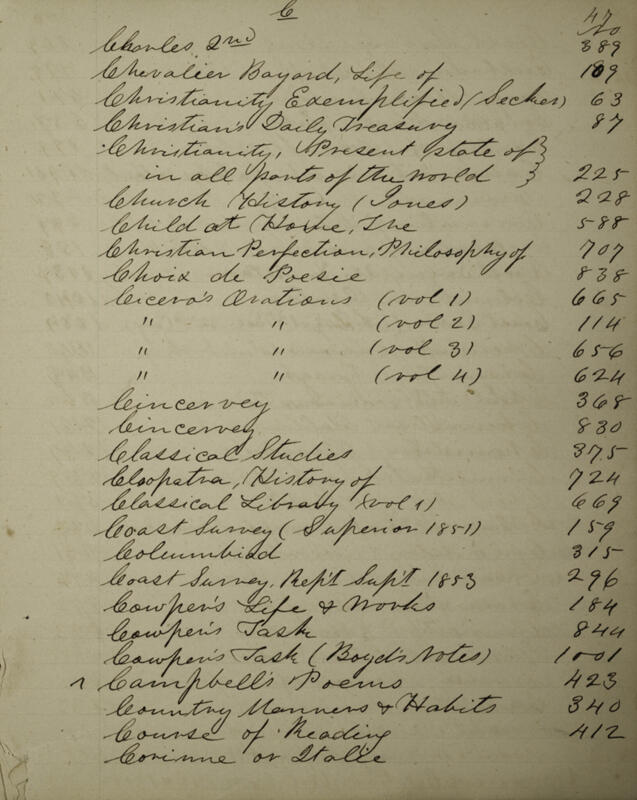 C
47
No
Charles 2nd 389
Chevalier Bayard, Life of 109
Christianity Exemplified (Secker) 63
Christian's Daily Treasury 87
Christianity, Present state of }
in all parts of the world } 225
Church History (Jones) 228
Child at Home, The 588
Christian Perfection, Philosophy of 707
Choix de Poesie 838
Cicero's Orations (vol 1) 665
" " (vol 2) 114
" " (vol 3) 656
" " (vol 4) 624
Cincervey 368
Cincervey 830
Classical Studies 375
Cleopatra, History of 724
Classical Library (vol 1) 669
Coast Survey (Superior 1851) 159
Columbiad 315
Coast Survey, Rept Supt 1853 296
Cowper's Life & Works 184
Cowper's Task 844
Cowper's Task (Boyd's Notes) 1001
Campbell's Poems 423
Country Manners & Habits 340
Course of Reading 412
Corinne or Italie